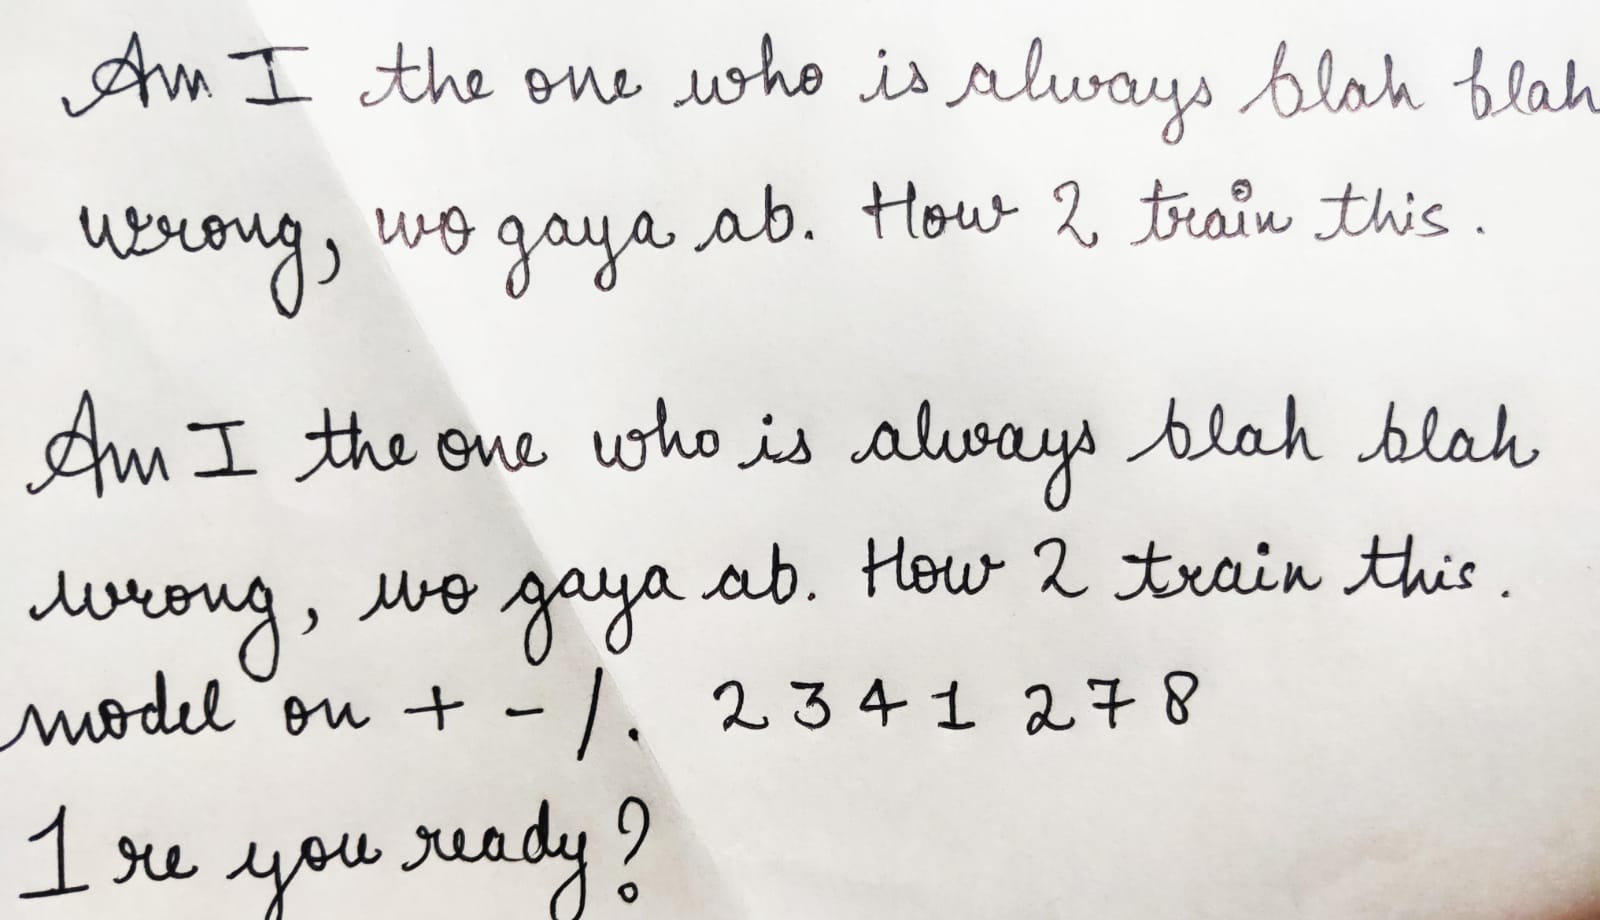 Am I the one who is always blah blah
wrong, wo gaya ab. How 2 train this.
Am I the one who is always blah blah
wrong, wo gaya ab. How 2 train this.
model on + - /. 2 3 4 1 2 7 8
1 re you ready?